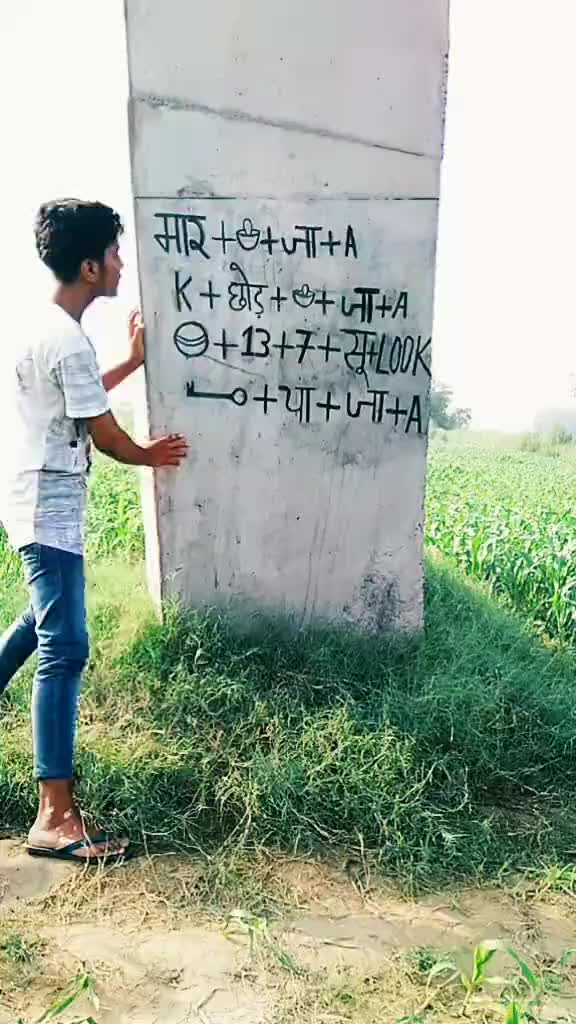 मार + 🪔 + जा + A
K + छोड़ + 🪔 + जा + A
+ 13 + 7 + सू + LOOK
🗝 + पा + जा + A